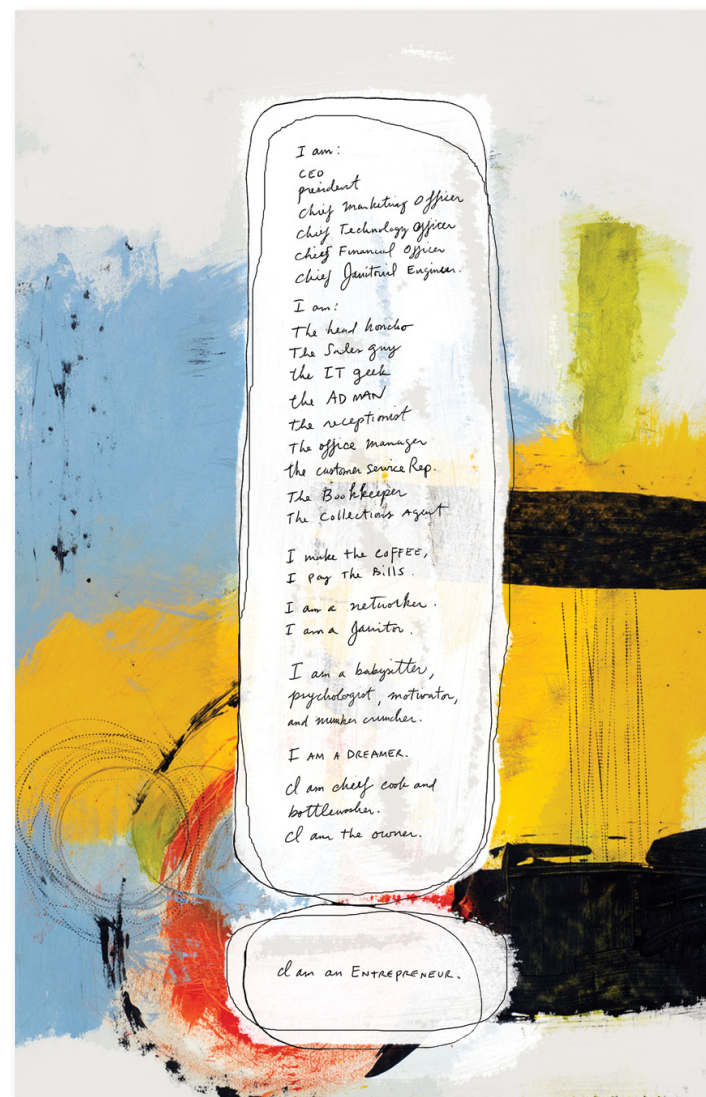 I am:
CEO
president
chief Marketing Officer
chief Technology Officer
chief Financial Officer
chief Janitorial Engineer.
I am:
The head honcho
The Sales guy
the IT geek
the AD MAN
the receptionist
The office manager
the customer service Rep.
The Bookkeeper
The Collections Agent
I make the COFFEE,
I pay The Bills.
I am a networker.
I am a Janitor.
I am a babysitter,
psychologist, motivator,
and number cruncher.
I AM A DREAMER.
I am cheef cook and
bottlewasher.
I am the owner.
I am an ENTREPRENEUR.